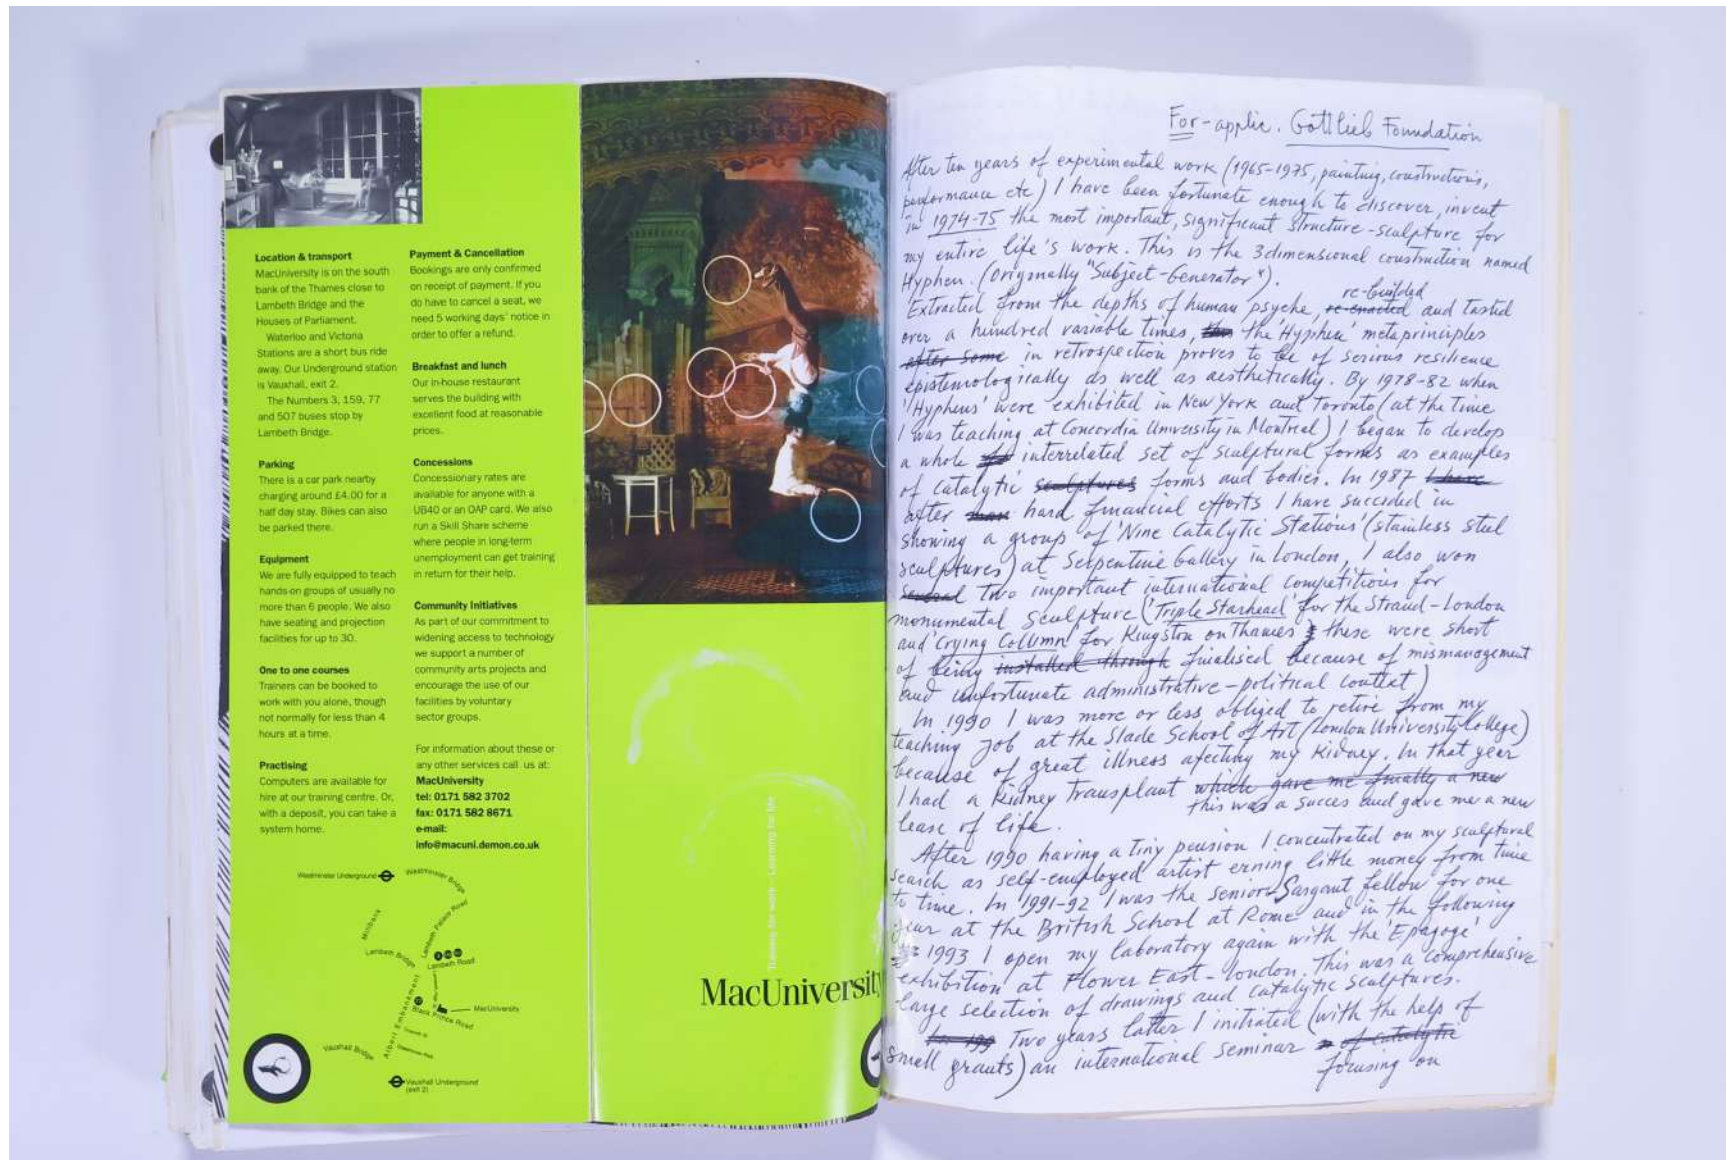 Location & transport
MacUniversity is on the south
bank of the Thames close to
Lambeth Bridge and the
Houses of Parliament.
Waterloo and Victoria
Stations are a short bus ride
away. Our Underground station
is Vauxhall, exit 2.
The Numbers 3, 159, 77
and 507 buses stop by
Lambeth Bridge.
Parking
There is a car park nearby
charging around £4.00 for a
half day stay. Bikes can also
be parked there.
Equipment
We are fully equipped to teach
hands-on groups of usually no
more than 6 people. We also
have seating and projection
facilities for up to 30.
One to one courses
Trainers can be booked to
work with you alone, though
not normally for less than 4
hours at a time.
Practising
Computers are available for
hire at our training centre. Or,
with a deposit, you can take a
system home.
Payment & Cancellation
Bookings are only confirmed
on receipt of payment. If you
do have to cancel a seat, we
need 5 working days' notice in
order to offer a refund.
Breakfast and lunch
Our in-house restaurant
serves the building with
excellent food at reasonable
prices.
Concessions
Concessionary rates are
available for anyone with a
UB40 or an OAP card. We also
run a Skill Share scheme
where people in long-term
unemployment can get training
in return for their help.
Community Initiatives
As part of our commitment to
widening access to technology
we support a number of
community arts projects and
encourage the use of our
facilities by voluntary
sector groups.
For information about these or
any other services call us at:
MacUniversity
tel: 0171 582 3702
fax: 0171 582 8671
e-mail:
info@macuni.demon.co.uk
Westminster Underground
Westminster Bridge
Millbank
Lambeth Palace Road
Lambeth Bridge
Lambeth Road
MacUniversity
Black Prince Road
Albert Embankment
Vauxhall Bridge
Vauxhall Underground
(exit 2)
Training for work – Learning for life
MacUniversity
For - applic. Gottlieb Foundation
After ten years of experimental work (1965-1975, painting, constructions,
performance etc) I have been fortunate enough to discover, invent
in 1974-75 the most important, significant structure-sculpture for
my entire life's work. This is the 3dimensional construction named
Hyphen. (Originally "Subject-Generator").
re-builded
Extracted from the depths of human psyche, re-enacted and tasted
over a hundred variable times, the 'Hyphen' metaprinciples
after some in retrospection proves to be of serious resilience
epistemologically as well as aesthetically. By 1978-82 when
'Hyphens' were exhibited in New York and Toronto (at the time
I was teaching at Concordia University in Montreal) I began to develop
a whole interrelated set of sculptural forms as examples
of catalytic sculptures forms and bodies. In 1987 I have
after hard financial efforts I have succided in
showing a group of 'Nine Catalytic Stations' (stainless steel
sculptures) at Serpentine Gallery in London, I also won
Several two important international competitions for
monumental sculpture ('Triple Starhead' for the Strand-London
and 'Crying Column' for Kingston on Thames; these were short
of being installed through finalised because of mismanagement
and unfortunate administrative-political context)
In 1990 I was more or less obliged to retire from my
teaching job at the Slade School of Art (London University College)
because of great illness afecting my kidney. In that year
I had a kidney transplant which gave me finally a new
this was a succes and gave me a new
lease of life.
After 1990 having a tiny pension I concentrated on my sculptural
search as self-employed artist erning little money from time
to time. In 1991-92 I was the senior Sargant fellow for one
year at the British School at Rome and in the following
1993 I open my laboratory again with the 'Epagoge'
exhibition at Flower East - London. This was a comprehensive
large selection of drawings and catalytic sculptures.
In 199 Two years latter I initiated (with the help of
small grants) an international seminar of catalytic
focusing on